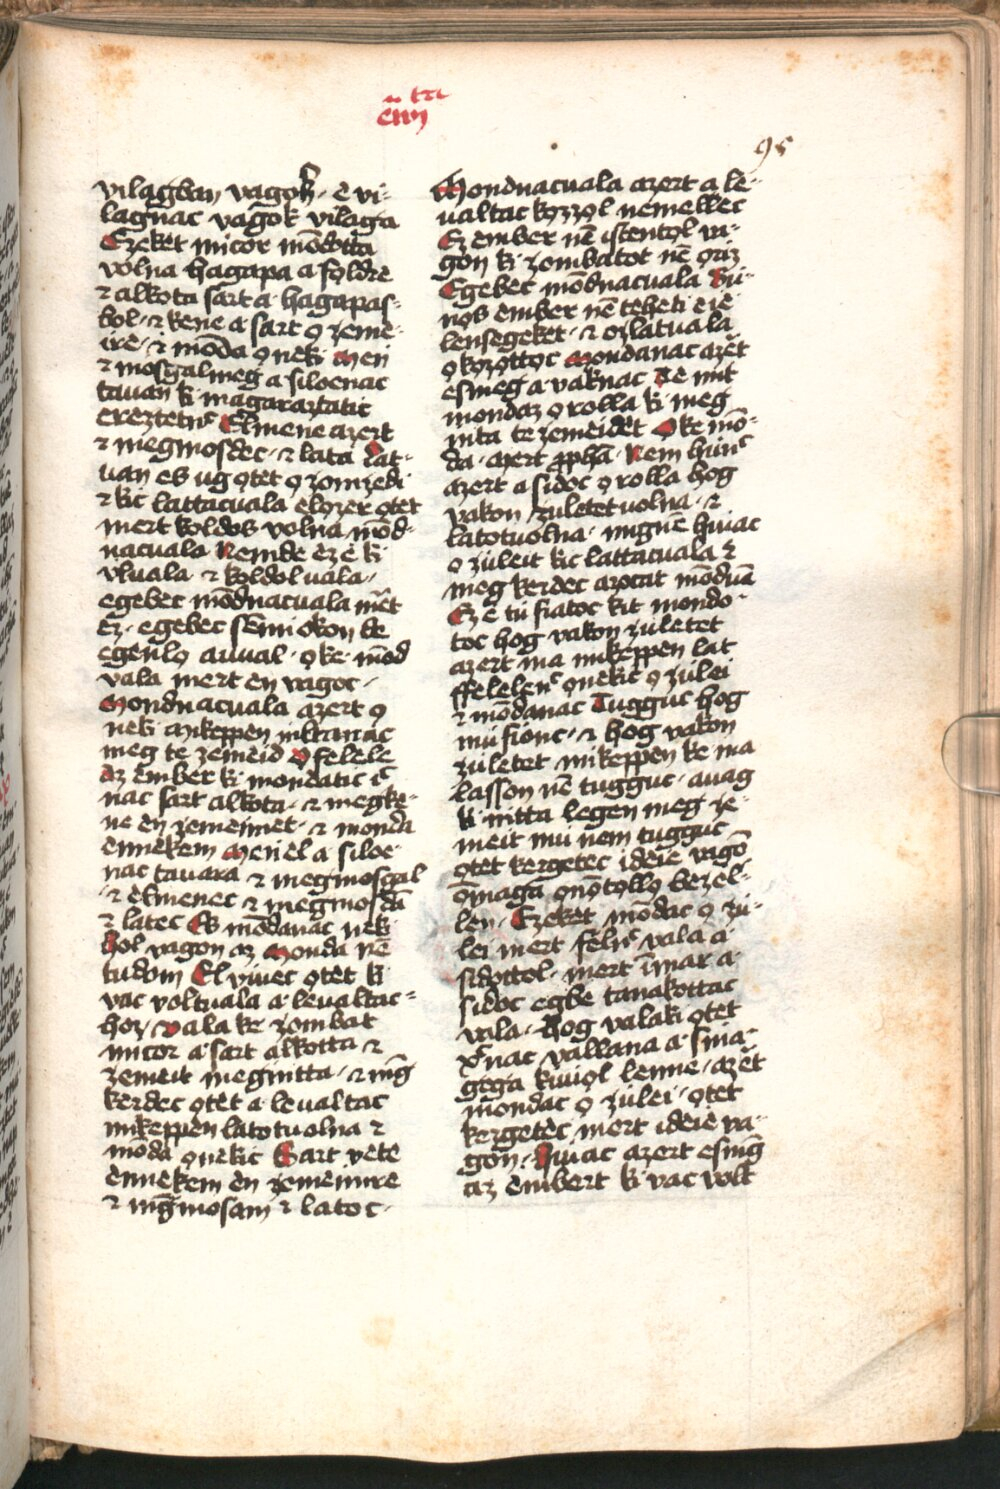 95
vilagban vagok· e vi-
lagnac vagok vilaga
Ezeket micor mōdotta
volna hagapa a foldre
⁊ alkota sart a· hagapas-
bol· ⁊ kene a sart o zeme-
ire· ⁊ mōda oneki Menj
⁊ mosgalmeg a siloenac
tauan ki magaraztatic
ereztetnc Elmene azert
⁊ megmosdec· ⁊ lata Lat-
uan es ug otet o zomzedi
⁊ kic lattacuala elozer otet
mert koldus volna mōd-
nacuala Nemde ez ė ki
vluala ⁊ koldol uala·
egebec mōdnacuala mēt
ez· egebec semi okon de
egenlo auual· oke· mōd
vala mert en vagoc·
Mondnacuala azert o
neki mikeppen mktanac
meg te zemeid O felele
Az ember ki mondatic ic
nac sart alkota· ⁊ megke-
ne en zemeimet· ⁊ monda
ennekem Menel a siloe
nac tauara ⁊ megmosgal
⁊ elmenec ⁊ megmosdā
⁊ latec Es mōdanac neki
hol vagon az Monda nē
tudom El viuec otet ki
vac voltuala a· leualtac-
hoz· Vala ke zombat
micor a· sart alkotta ⁊
zemeit megnitta· ⁊ mīg
kerdec otet a· leualtac
mikeppen latotuolna ⁊
mōda onekic Sart vete
ennekem en zemeimre
⁊ mīgmosam ⁊ latoc·
Mondnacuala azert a le-
ualtac kozzol nemellec
Ez ember nē istentol va-
gon ki zombatot nē oriz
Egebec mōdnacuala Bu-
nos ember nē teheti e ie-
lensegeket· ⁊ ozlatuala
okozottoc Mondanac azēt
esmeg a· vaknac Te mit
mondaz o rolla ki meg
nita te zemeidet Oke mō-
da· mert pphā· Nem hiuc
azert a sidoc o rolla hog
vakon zuletetuolna· ⁊
latotuolna· migne hiuac
o zuleit kic lattacuala ⁊
meg kerdec azocat mōduā
Ez ė tu fiatoc kit mondo-
toc hog vakon zuletet
azert ma mikeppen lat
ffelelenc onekic o zulei
⁊ mōdanac Tugguc hog
mu fionc· ⁊ hog vakon
zuletet mikeppen ke ma
lasson nē tugguc· auag
ki nitta legen meg ze-
meit mu nem tugguc
otet kergetec ideie vagō
ōmaga onōtollo bezel-
len· Ezeket mōdac o zu-
lei mert felnc vala a·
sidottol· mert īmar a·
sidoc egbe tanakottac
vala· Hog valaki otet
xcnac vallana a· sina-
goga kiuol lenne· azēt
mondac o zulei· otet
kergetec mert ideie va-
gon· Hiuac azert esmīg
az embert ki vac volt